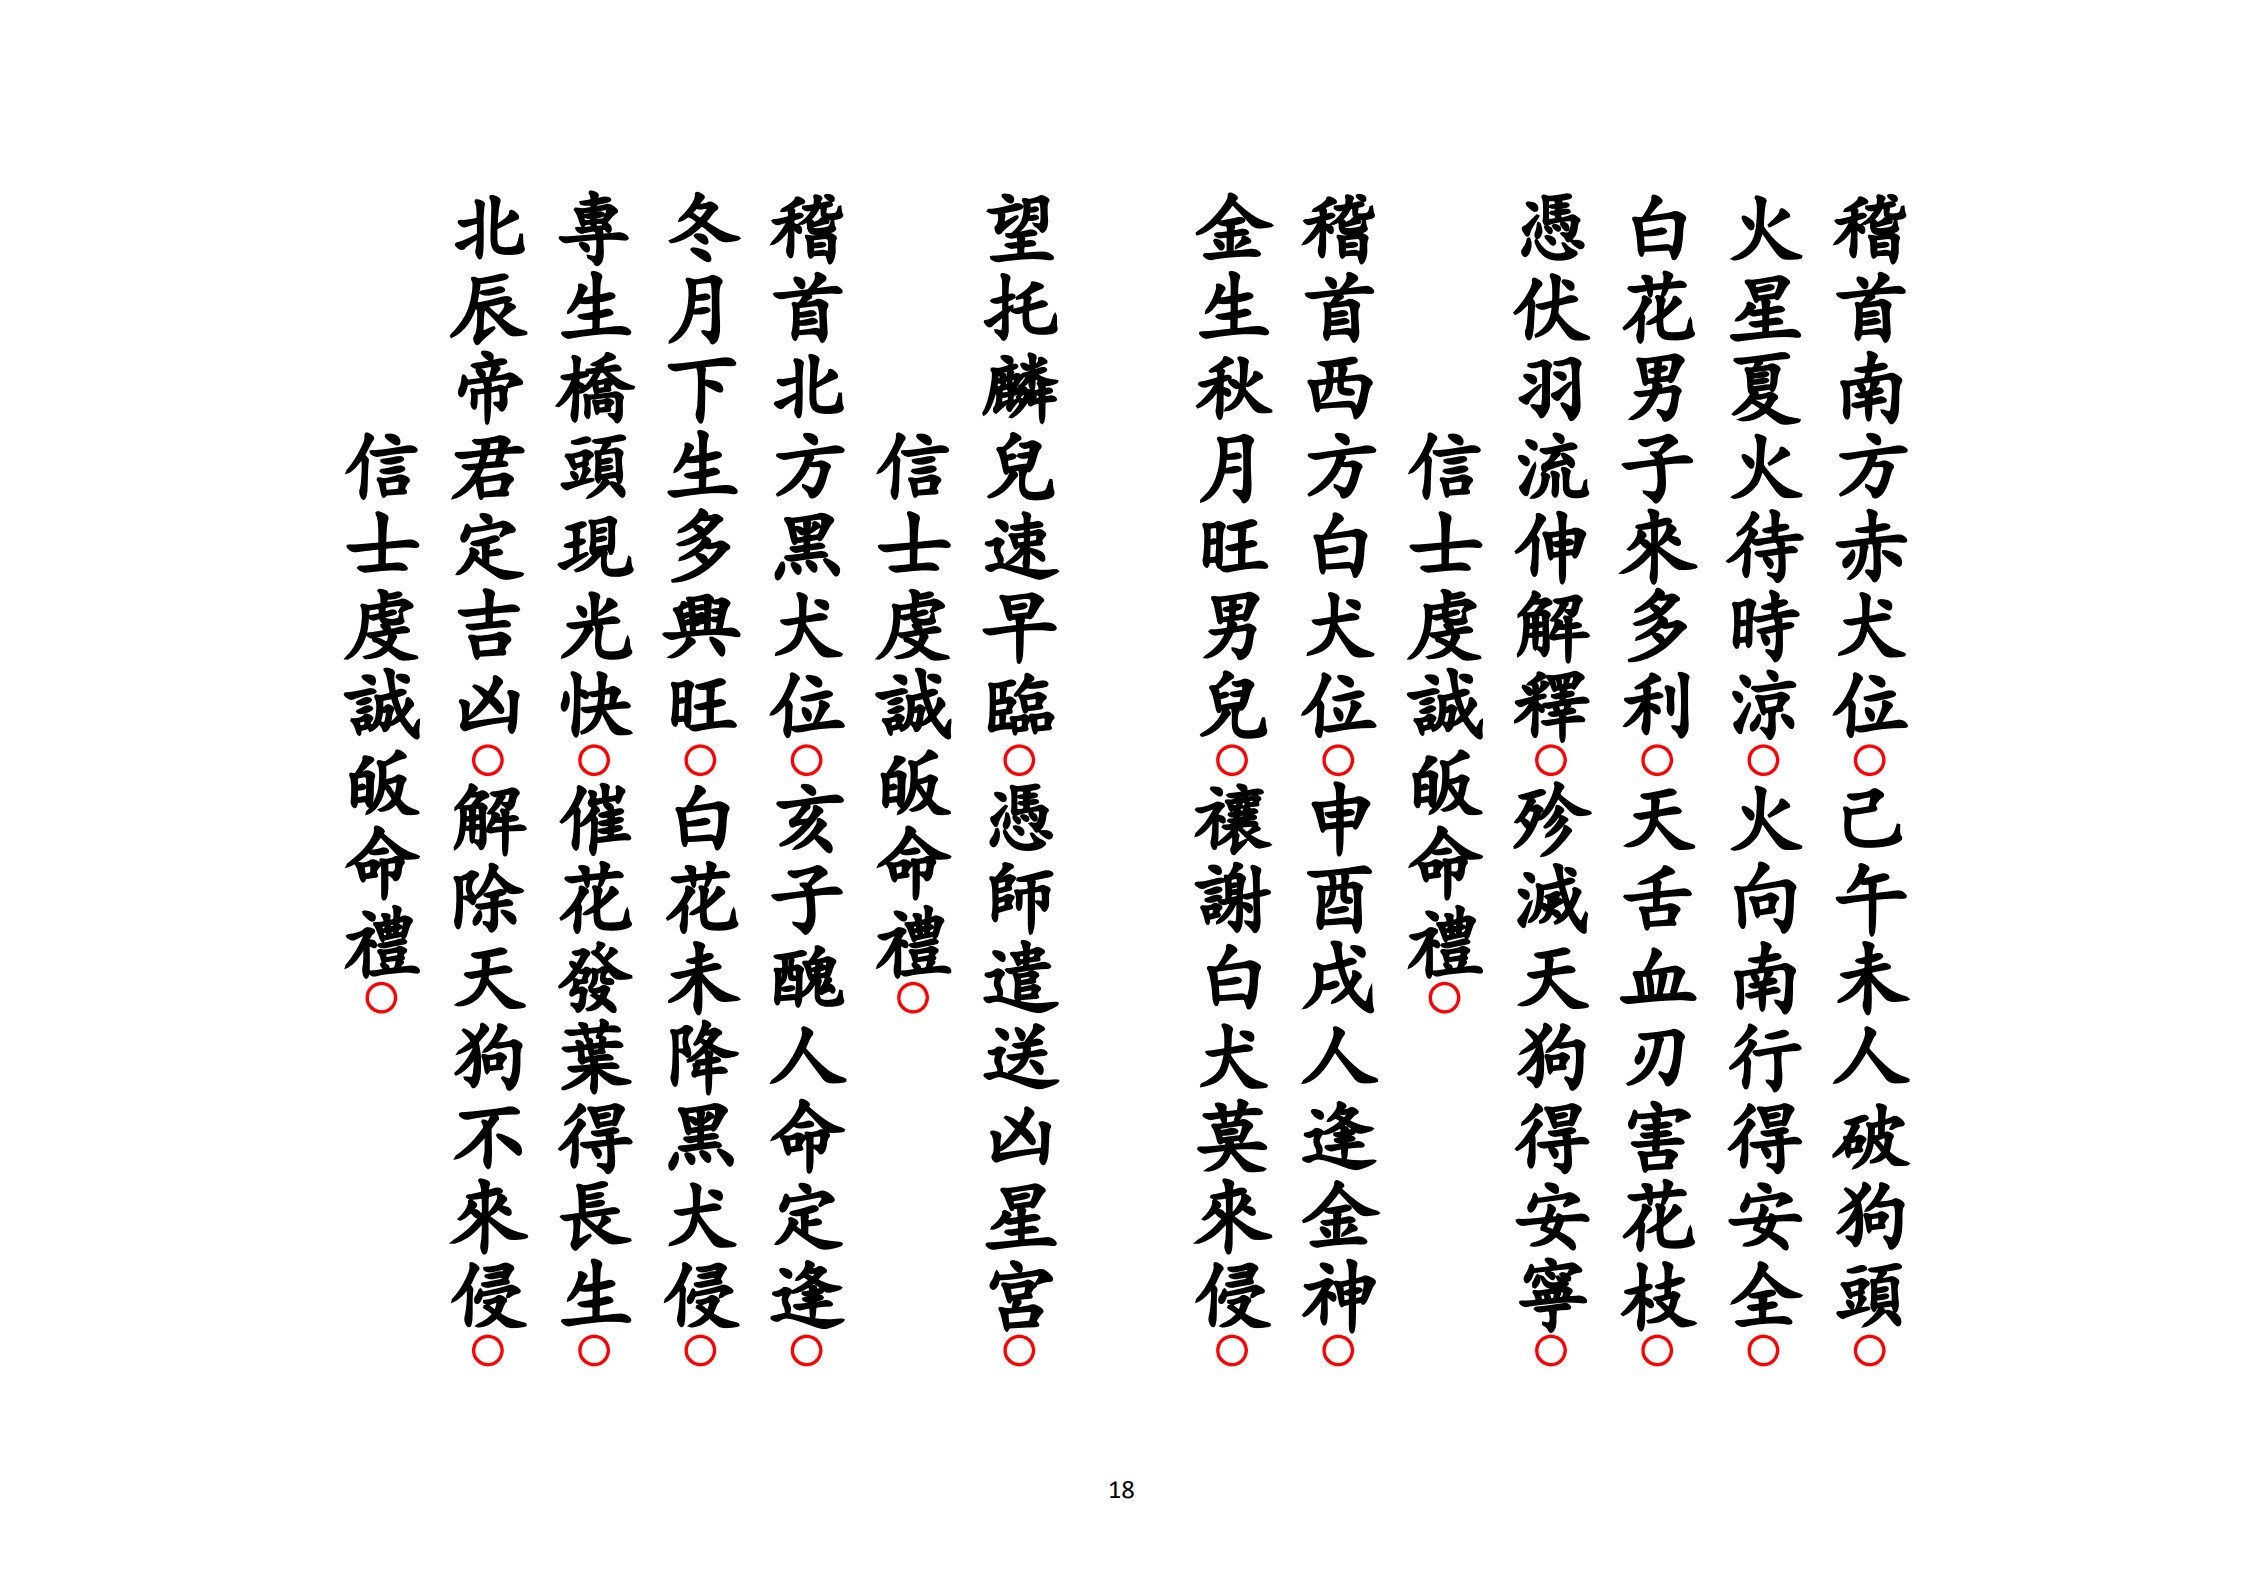 稽首南方赤犬位○己午未人破狗頭○
火星夏火待時涼○火向南行得安全○
白花男子來多利○天舌血刃害花枝○
憑伏羽流伸解釋○殄滅天狗得安寧○
信士虔誠皈命禮○
稽首西方白犬位○申酉戌人逢金神○
金生秋月旺男兒○禳謝白犬莫來侵○
望托麟兒速早臨○憑師遣送凶星宮○
信士虔誠皈命禮○
稽首北方黑犬位○亥子醜人命定逢○
冬月下生多興旺○白花未降黑犬侵○
專生橋頭現光快○催花發葉得長生○
北辰帝君定吉凶○解除天狗不來侵○
信士虔誠皈命禮○
18